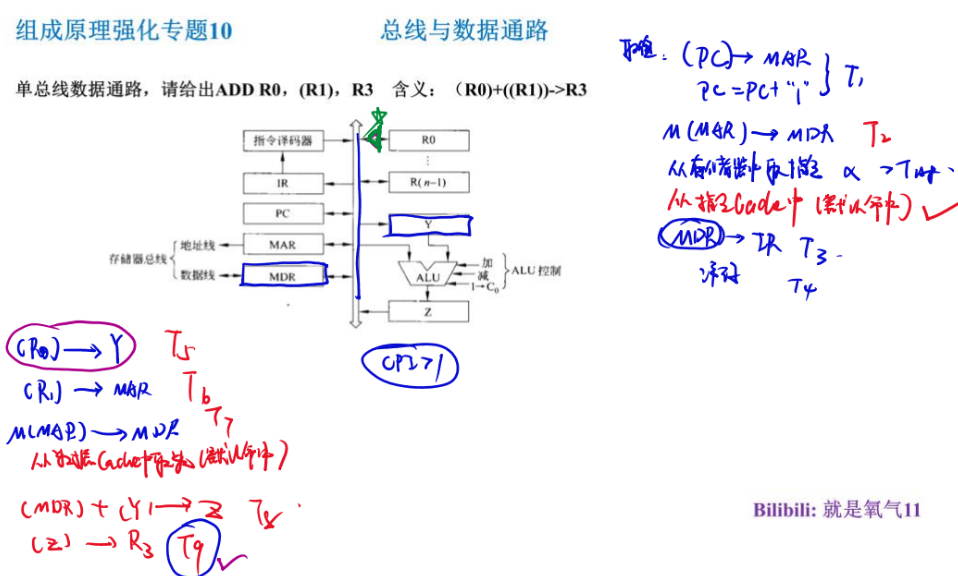 组成原理强化专题10
总线与数据通路
单总线数据通路，请给出ADD R0, (R1)，R3 含义：（R0)+((R1))->R3
指令译码器
R0
⋮
IR
R(n−1)
PC
Y
存储器总线
地址线
MAR
数据线
MDR
ALU
加
减
1→C₀
ALU 控制
Z
取值: (PC) → MAR
PC = PC + "1"
T1
M(MAR) → MDR T2
从存储器中取指令
从指令Cache中 (默认命中) ✓
(MDR) → IR T3
译码 T4
(R0) → Y T5
(R1) → MAR T6
M(MAR) → MDR T7
从数据Cache中取数 (默认命中)
(MDR) + (Y) → Z T8
(Z) → R3 T9 ✓
CPI>1
Bilibili: 就是氧气11